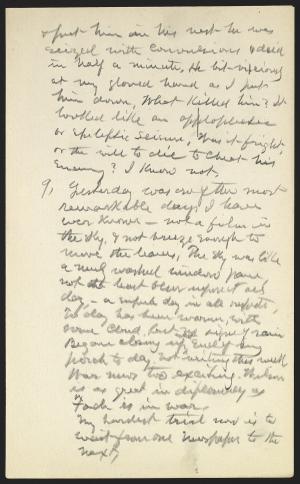 & put him in his nest he was
seized with convulsions & died
in half a minute. He bit viciously
at my gloved hand as I put
him down. What killed him? It
looked like an apoplectic
or epileptic seizure. Was it fright
or the will to die to cheat his
enemy? I know not.
9, Yesterday was one of the most
remarkable days I have
ever known – not a film in
the sky, & not breeze enough to
move the leaves, The sky was like
a newly washed window pane
not the least blur upon it all
day, – a superb day in all respects,
To day has been warmer, with
some cloud, but no sign of rain
Began closing up
porch to day. Not writing this week
War news too exciting. Wilson
is as great in diplomacy as
Foch is in war.
My hardest trial now is to
wait from one newspaper to the
next,